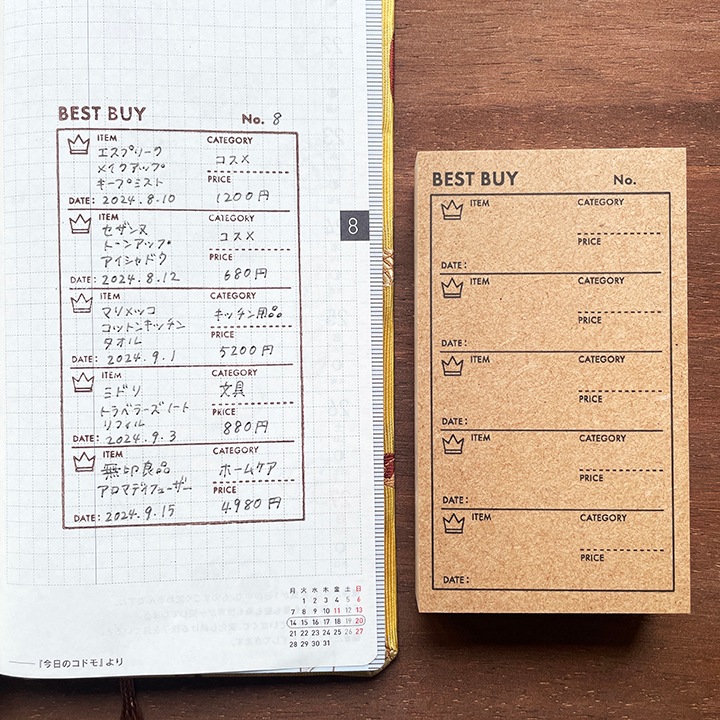 BEST BUY
No. 8
ITEM
CATEGORY
エスプリーク
メイクアップ
キープミスト
コスメ
PRICE
DATE: 2024.8.10
1200円
ITEM
CATEGORY
セザンヌ
トーンアップ
アイシャドウ
コスメ
PRICE
DATE: 2024.8.12
680円
ITEM
CATEGORY
マリメッコ
コットンキッチン
タオル
キッチン用品
PRICE
DATE: 2024.9.1
5200円
ITEM
CATEGORY
ミドリ
トラベラーズノート
リフィル
文具
PRICE
DATE: 2024.9.3
880円
ITEM
CATEGORY
無印良品
アロマディフューザー
ホームケア
PRICE
DATE: 2024.9.15
4980円
8
月 火 水 木 金 土 日
1 2 3 4 5 6
7 8 9 10 11 12 13
14 15 16 17 18 19 20
21 22 23 24 25 26 27
28 29 30 31
──『今日のコドモ』より
BEST BUY
No.
ITEM
CATEGORY
PRICE
DATE:
ITEM
CATEGORY
PRICE
DATE:
ITEM
CATEGORY
PRICE
DATE:
ITEM
CATEGORY
PRICE
DATE:
ITEM
CATEGORY
PRICE
DATE: